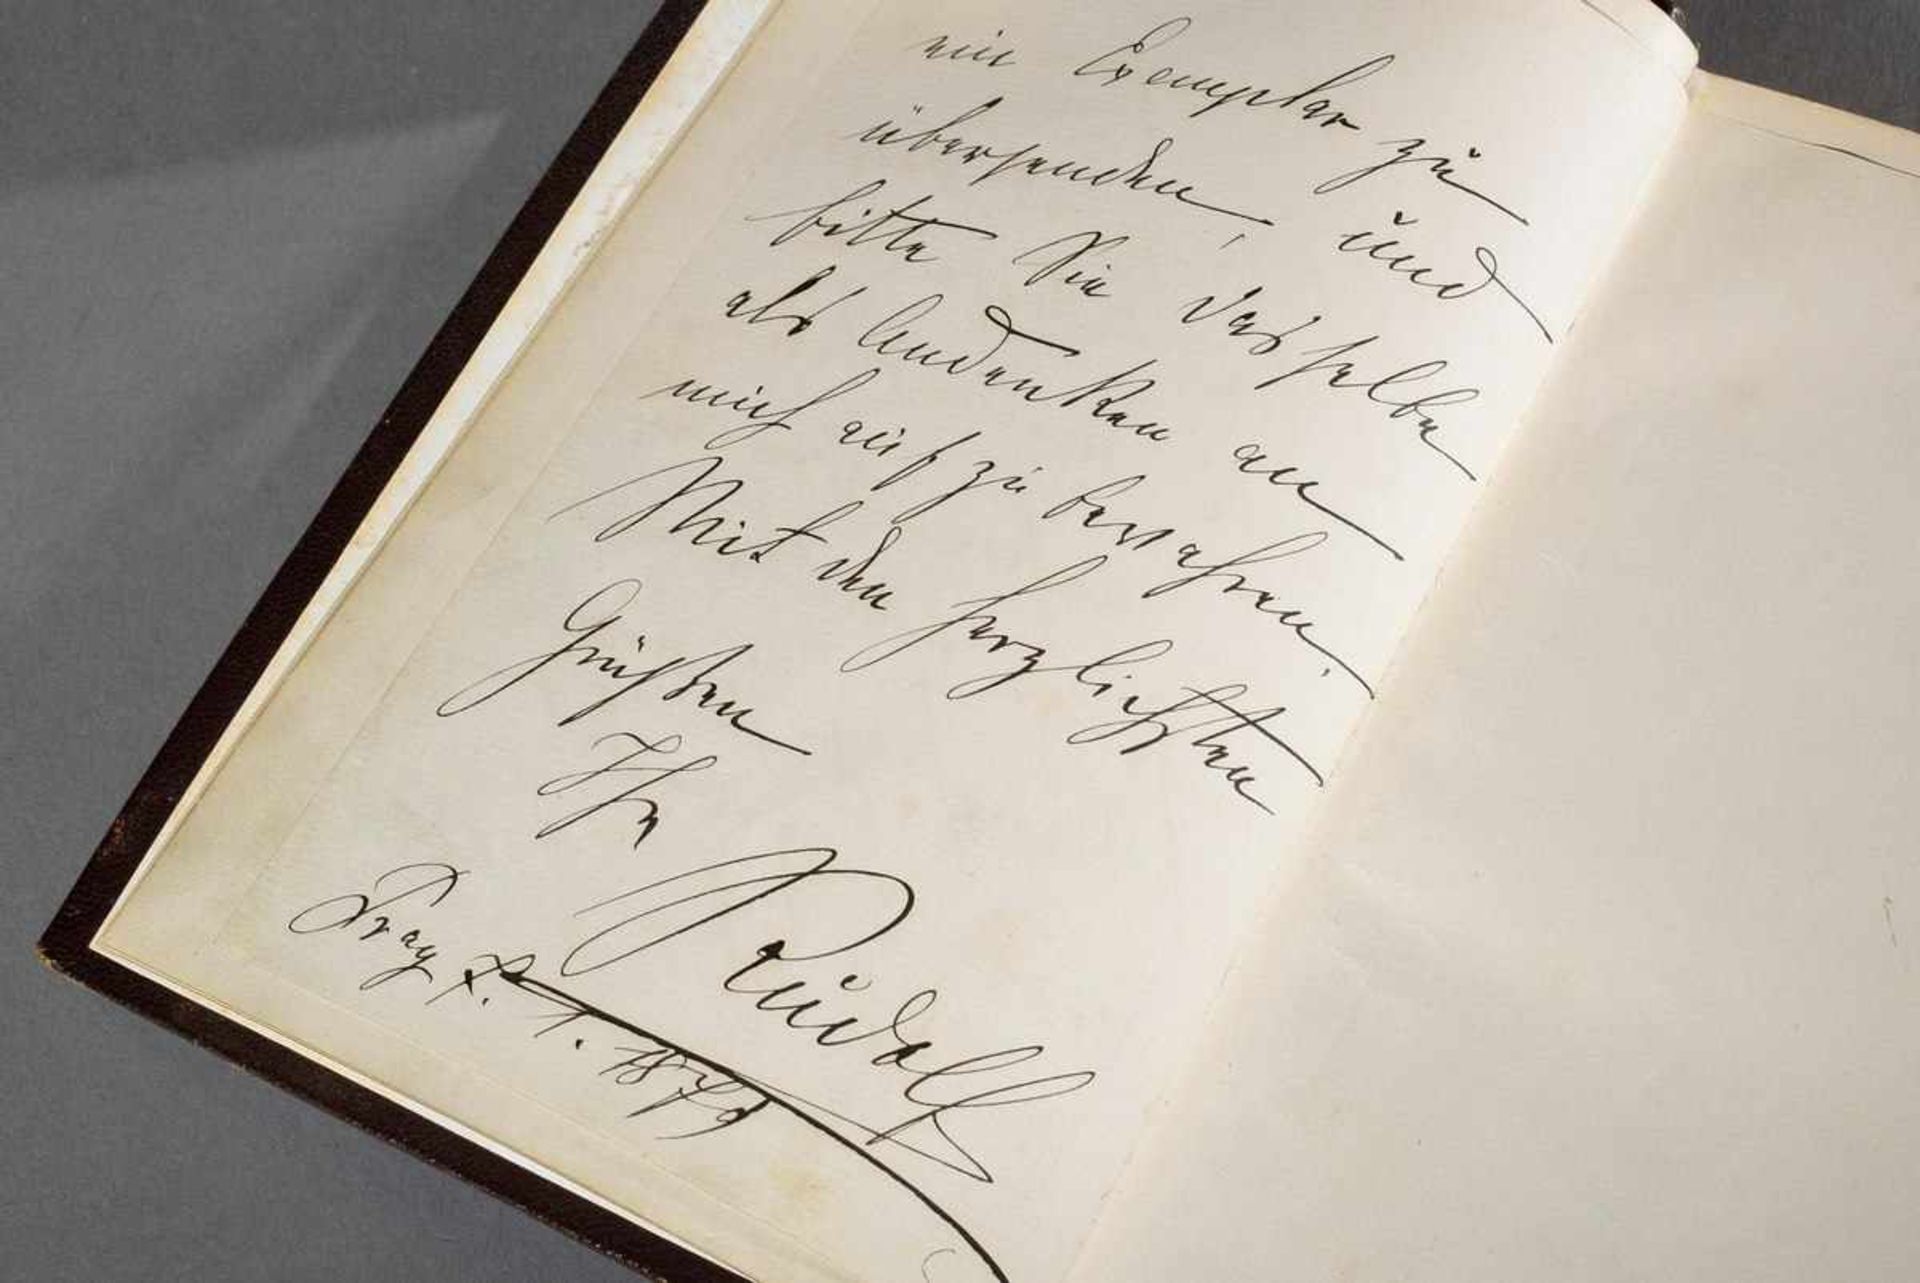 ein Exemplar zu
übersenden, und
bitte Sie dasselbe
als Andenken an
mich aufzubewahren.
Mit den herzlichsten
Grüßen
Ihr
Rudolf
Prag 7. 1. 1879